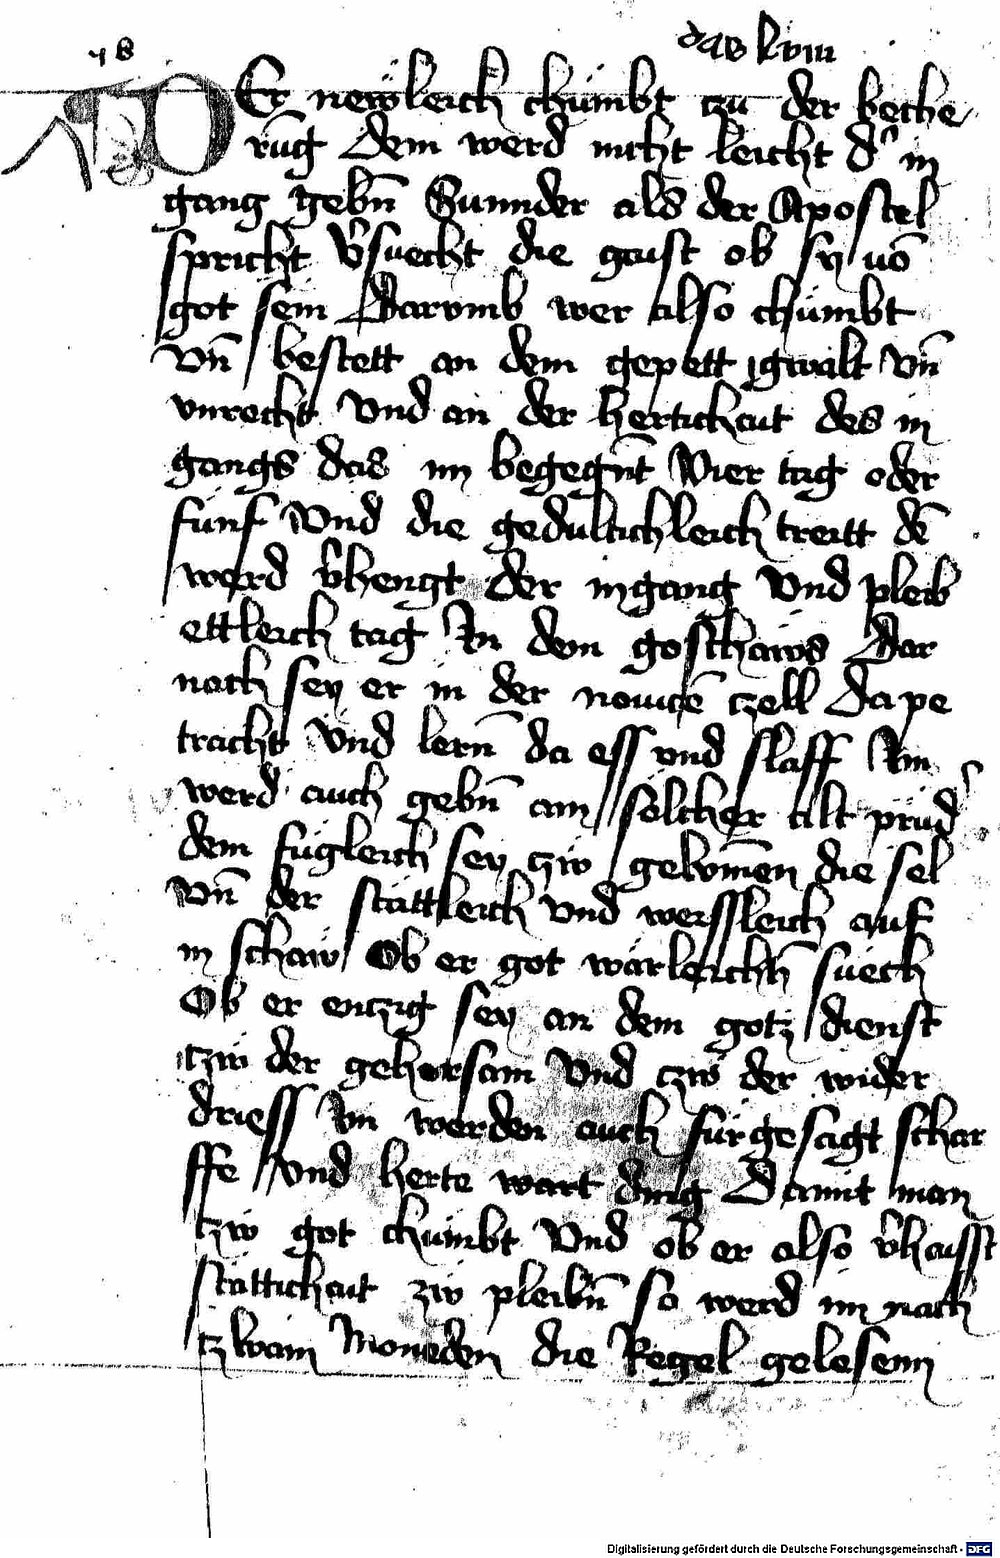 das lviii
58
DEr newleich chümbt czu der beche
rũg Dem werd nicht leicht d' in
gang gebñ Sunnder als der Apostel
spricht v̄suecht die gaist ob sy võ
got sein Darvmb wer also chümbt
vñ bestett an dem gepett gwalt vñ
vnrecht Vnd an der herttichait des in
gangs das im begegñt Vier tag oder
fünf Vnd die gedultichleich treitt dē
werd v̄hengt der ingang Vnd pleib
ettleich tag In dem gosthaws Dar
nach sey er in der nouicē czell Da pe
tracht Vnd lerñ da ess vnd slaff Im
werd auch gebñ ain sölcher alt prüd'
dem fügleich sey czw gebv̄nen die sel
Vñ der stättleich Vnd werssleich auf
in schaw Ob er got wärleichñ suech
Ob er enczig sey an dem gotz dienst
czw der gehorsam Vnd czw der wider
driess Im werden auch fürgesagt schar
ffe Vnd herte wart ding Damit man
tzw got chümbt Vnd ob er also v̄haisst
stättichait zw pleibñ so werd im nach
tzwain Moneden die Regel gelesenn
Digitalisierung gefördert durch die Deutsche Forschungsgemeinschaft - DFG